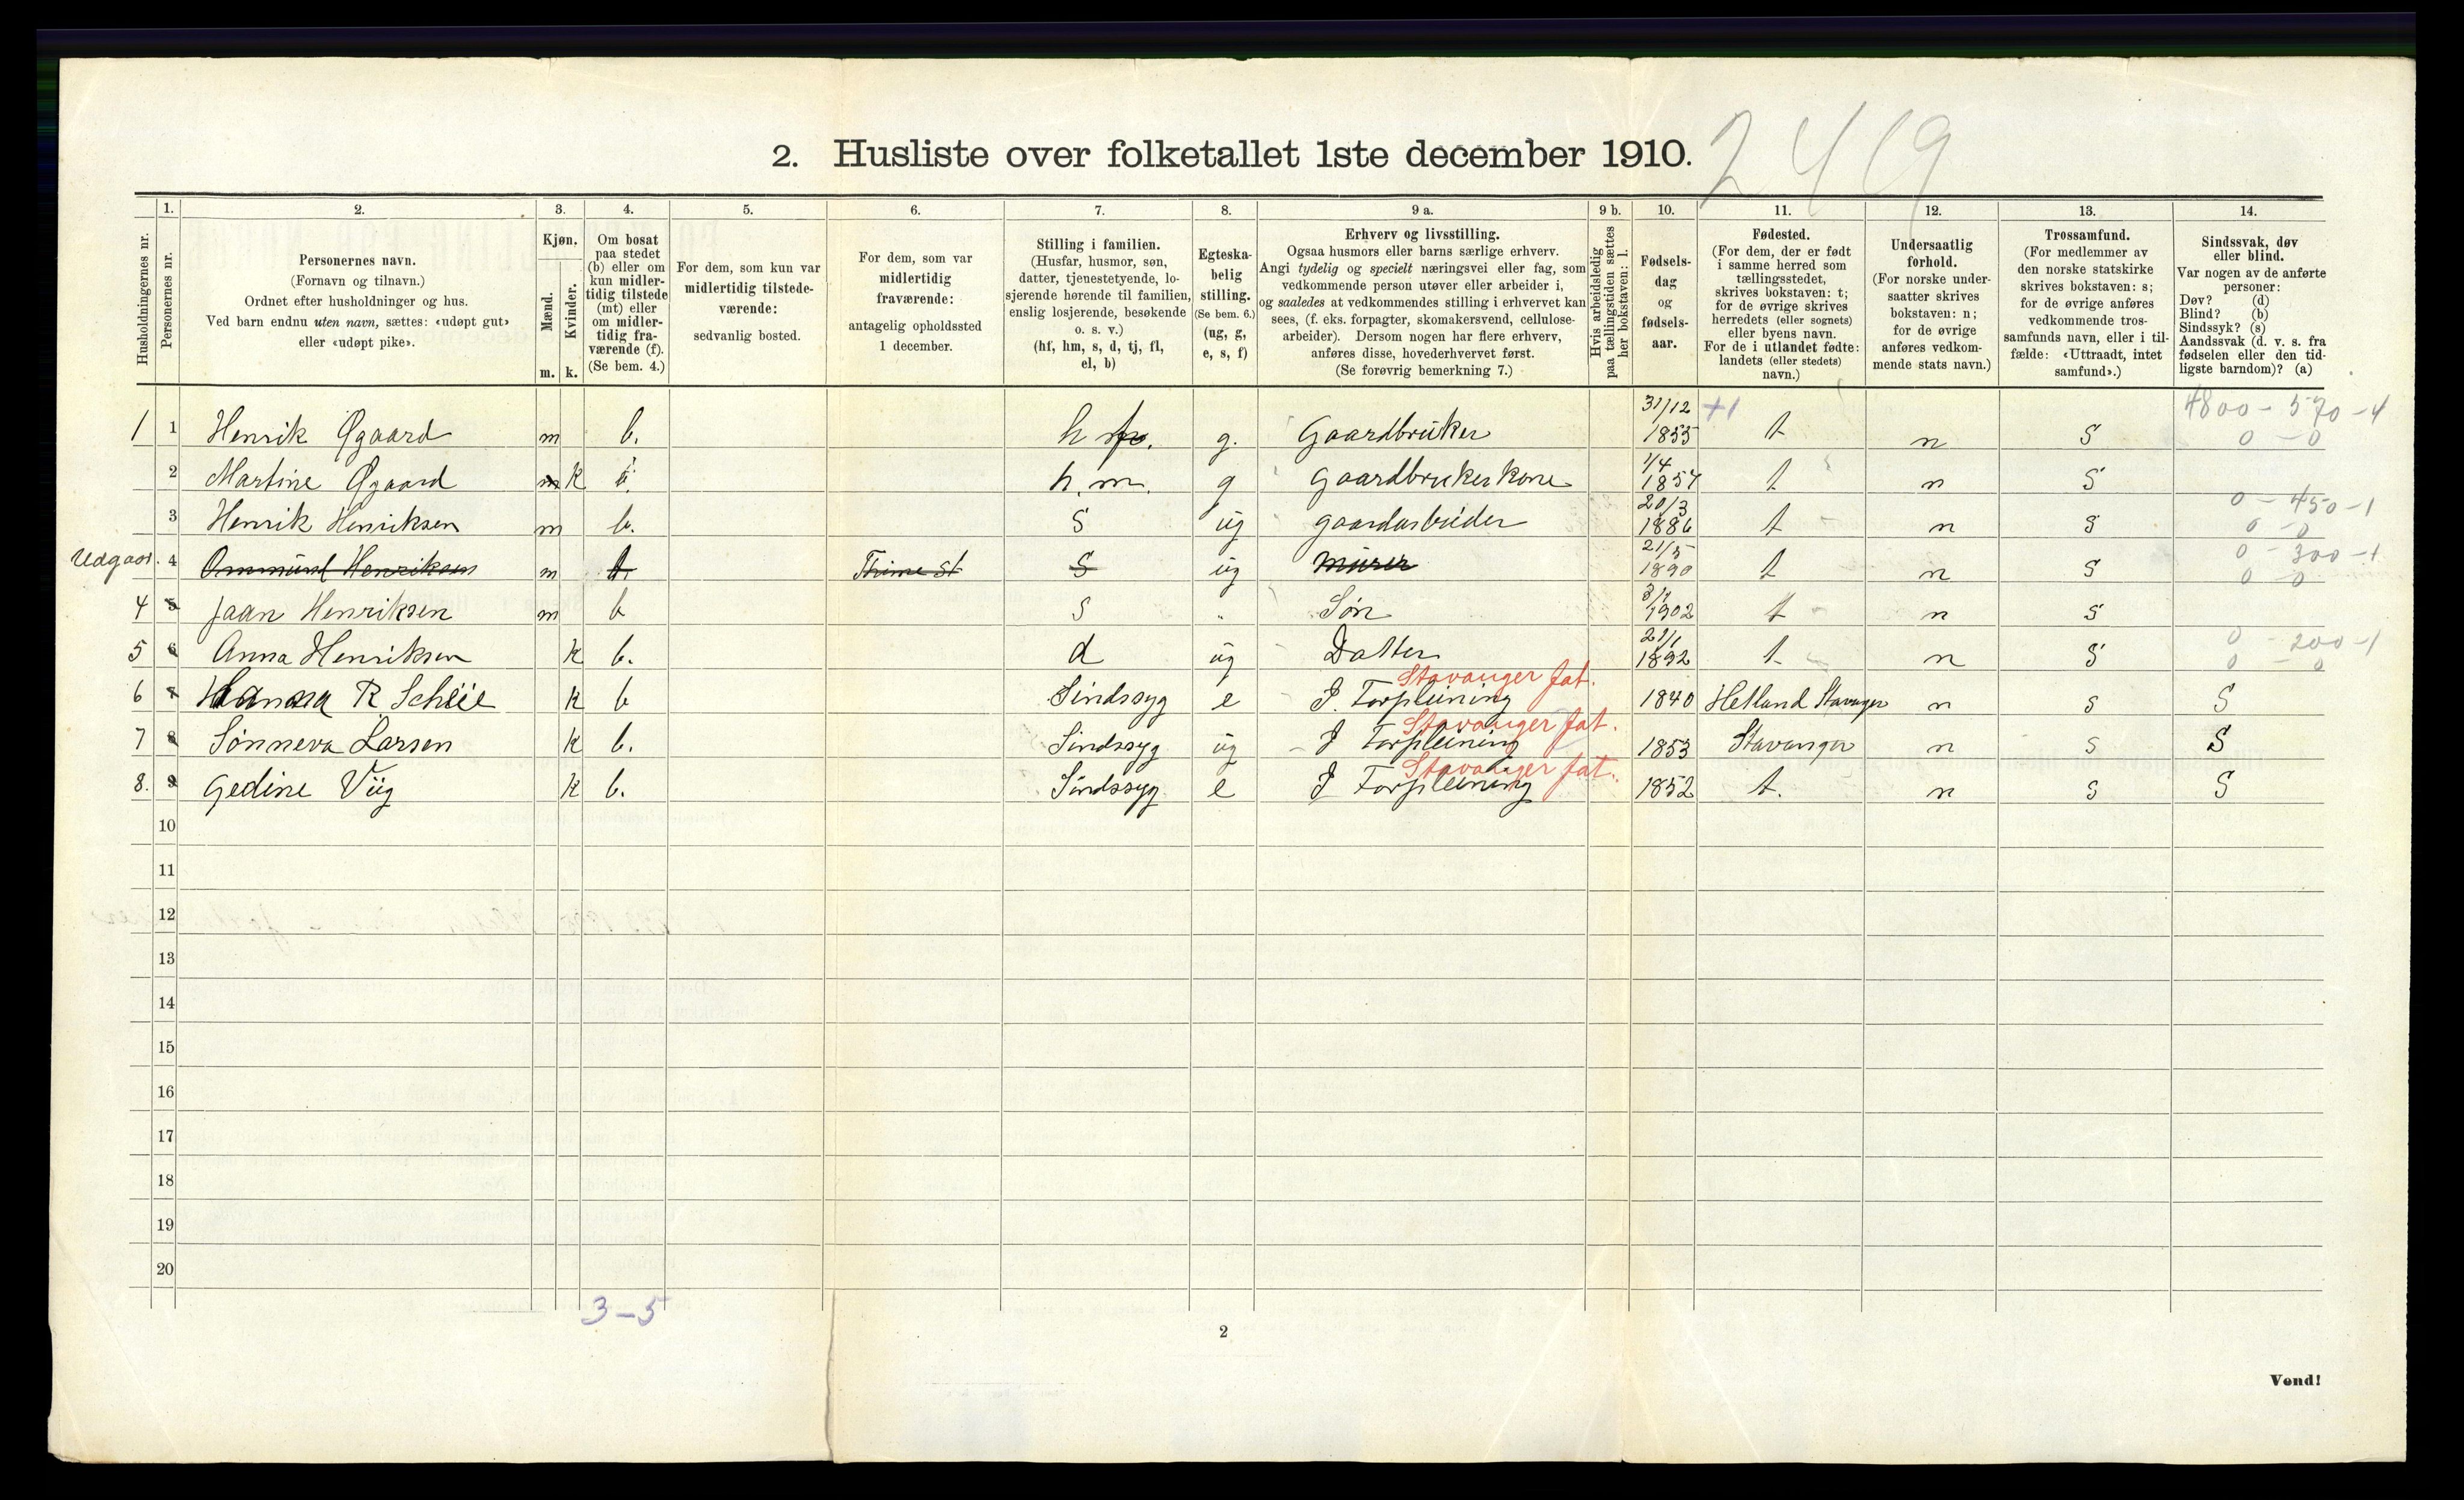 2. Husliste over folketallet 1ste december 1910.
249
1. 2. 3. 4. 5. 6. 7. 8. 9 a. 9 b. 10. 11. 12. 13. 14.
Husholdningernes nr.
Personernes nr.
Personernes navn.
(Fornavn og tilnavn.)
Ordnet efter husholdninger og hus.
Ved barn endnu uten navn, sættes: «udøpt gut»
eller «udøpt pike».
Kjøn.
Mænd.
Kvinder.
m. k.
Om bosat
paa stedet
(b) eller om
kun midler-
tidig tilstede
(mt) eller
om midler-
tidig fra-
værende (f).
(Se bem. 4.)
For dem, som kun var
midlertidig tilstede-
værende:
sedvanlig bosted.
For dem, som var
midlertidig
fraværende:
antagelig opholdssted
1 december.
Stilling i familien.
(Husfar, husmor, søn,
datter, tjenestetyende, lo-
sjerende hørende til familien,
enslig losjerende, besøkende
o. s. v.)
(hf, hm, s, d, tj, fl,
el, b)
Egteska-
belig
stilling.
(Se bem. 6.)
(ug, g,
e, s, f)
Erhverv og livsstilling.
Ogsaa husmors eller barns særlige erhverv.
Angi tydelig og specielt næringsvei eller fag, som
vedkommende person utøver eller arbeider i,
og saaledes at vedkommendes stilling i erhvervet kan
sees, (f. eks. forpagter, skomakersvend, cellulose-
arbeider). Dersom nogen har flere erhverv,
anføres disse, hovederhvervet først.
(Se forøvrig bemerkning 7.)
Hvis arbeidsledig
paa tællingstiden sættes
her bokstaven: l.
Fødsels-
dag
og
fødsels-
aar.
Fødested.
(For dem, der er født
i samme herred som
tællingsstedet,
skrives bokstaven: t;
for de øvrige skrives
herredets (eller sognets)
eller byens navn.
For de i utlandet fødte:
landets (eller stedets)
navn.)
Undersaatlig
forhold.
(For norske under-
saatter skrives
bokstaven: n;
for de øvrige
anføres vedkom-
mende stats navn.)
Trossamfund.
(For medlemmer av
den norske statskirke
skrives bokstaven: s;
for de øvrige anføres
vedkommende tros-
samfunds navn, eller i til-
fælde: «Uttraadt, intet
samfund».)
Sindssvak, døv
eller blind.
Var nogen av de anførte
personer:
Døv? (d)
Blind? (b)
Sindssyk? (s)
Aandssvak (d. v. s. fra
fødselen eller den tid-
ligste barndom)? (a)
4800 - 570 - 4
1 1 Henrik Øgaard m b. h g. Gaardbruker 31/12 1855 +1 t n S 0 - 0
2 Martine Øgaard k b. h.m. g gaardbrukerkone 1/4 1857 t n S
3 Henrik Henriksen m b. S ug gaardarbeider 20/3 1886 t n S 0 - 450 - 1
0 - 0
Udgaar. 4 Ommund Henriksen m Thime St S ug Murer 21/5 1890 t n S 0 - 300 - 1
0 - 0
4 5 Jaan Henriksen m b S " Søn 1902 t n S
5 6 Anna Henriksen k b. d ug Datter 21/1 1892 t n S 0 - 200 - 1
0 - 0
Stavanger fat.
6 7 Hanna R Schiie k b Sindssyg e I Forpleining 1840 Hetland Stavanger n s S
Stavanger fat.
7 8 Sønneva Larsen k b. Sindssyg ug I Forpleining 1853 Stavanger n s S
Stavanger fat.
8. 9 Gedine Viig k b. Sindssyg e I Forpleining 1852 t. n s S
10
11
12
13
14
15
16
17
18
19
20
3 - 5
2
Vend!